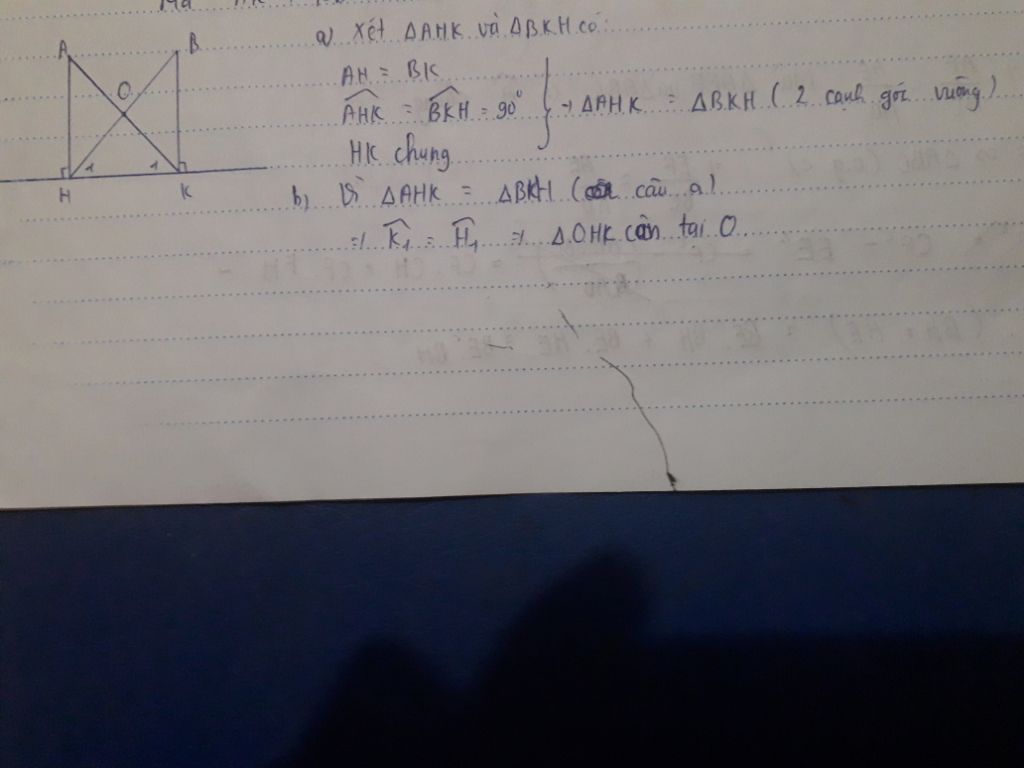 A
B
O
1
1
H
K
a) Xét ΔAHK và ΔBKH có:
AH = BK
AHK = BKH = 90° } → ΔAHK = ΔBKH ( 2 cạnh góc vuông )
HK chung
b) Vì ΔAHK = ΔBKH ( câu a)
=> K₁ = H₁ => ΔOHK cân tại O